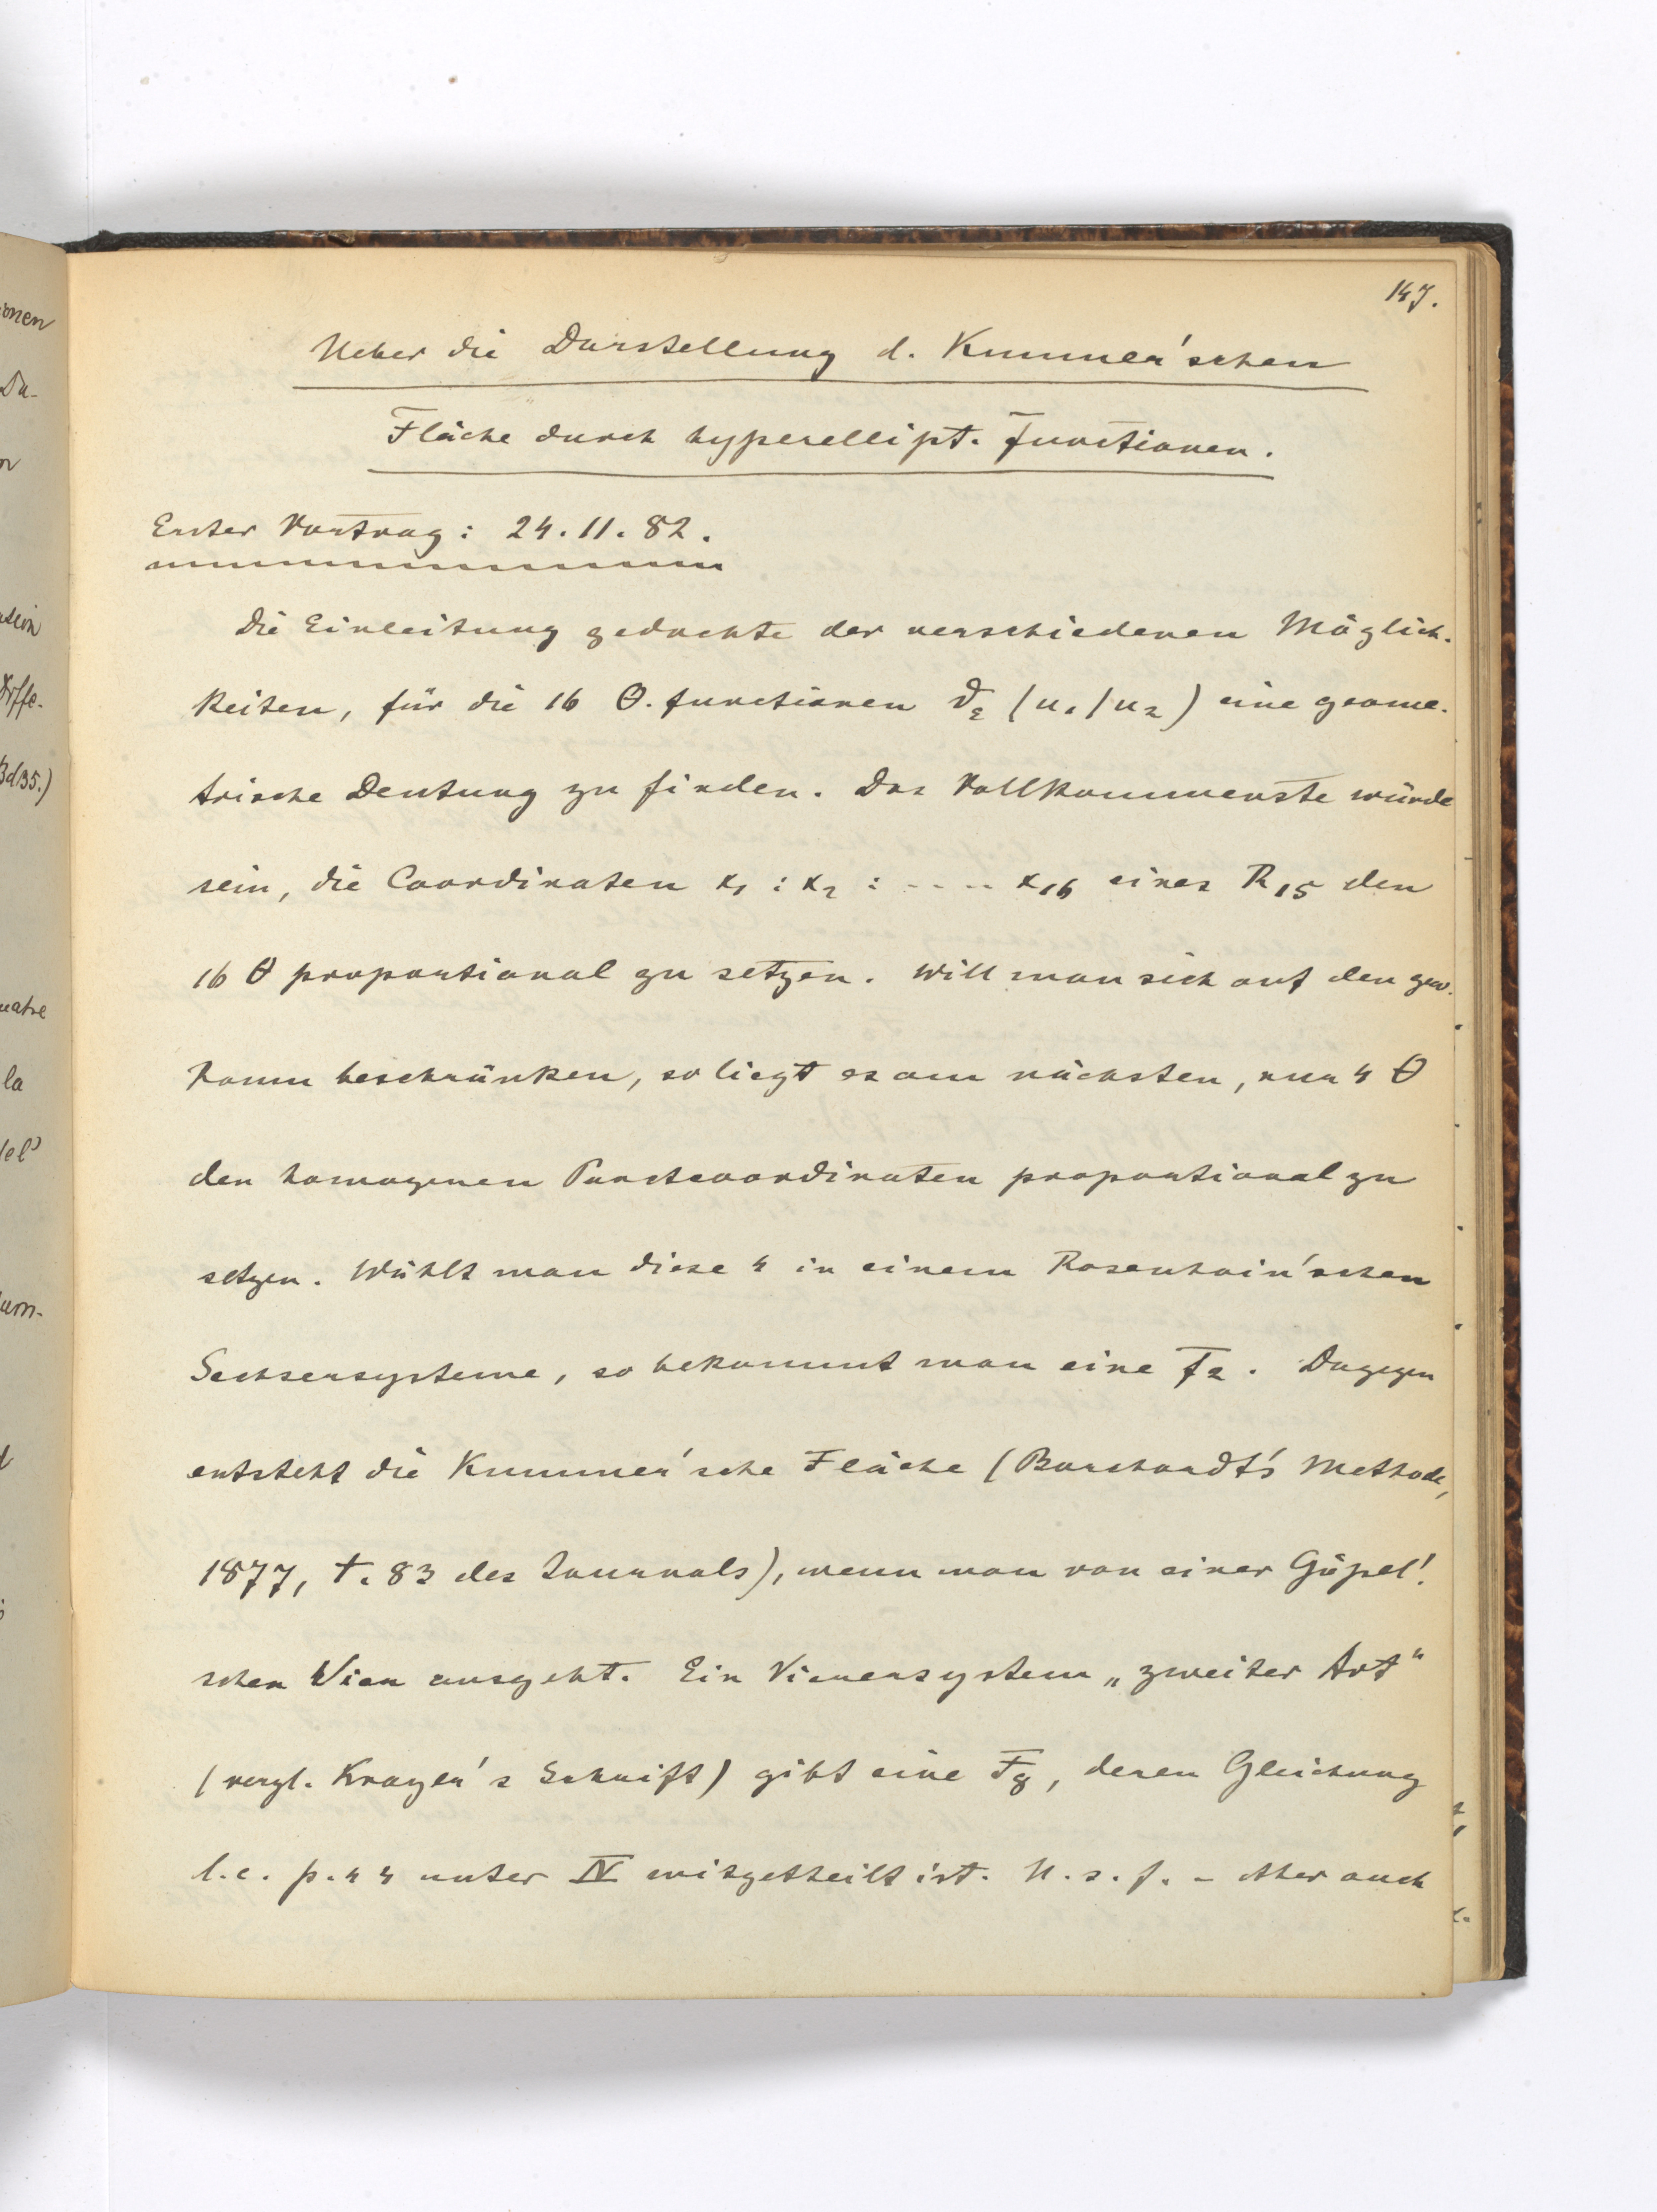 147.
Ueber die Darstellung d. Kummer'schen
Fläche durch hyperellipt. Functionen.
Erster Vortrag: 24.11.82.
Die Einleitung gedachte der verschiedenen Möglich-
keiten, für die 16 Θ-functionen ϑ (u₁/u₂) eine geome-
trische Deutung zu finden. Das Vollkommenste würde
sein, die Coordinaten x₁ : x₂ : .... x₁₆ eines R₁₅ den
16 Θ proportional zu setzen. Will man sich auf den gew.
Raum beschränken, so liegt es am nächsten, nur 4 Θ
den homogenen Punctcoordinaten proportional zu
setzen. Wählt man diese 4 in einem Rosenhain'schen
Sechsersysteme, so bekommt man eine F₂. Dagegen
entsteht die Kummer'sche Fläche (Borchardt's Methode,
1877, t. 83 des Journals), wenn man von einer Göpel'-
schen Vier ausgeht. Ein Vierersystem „zweiter Art“
(vergl. Krazer's Schrift) gibt eine F₈, deren Gleichung
l.c. p. 44 unter IV mitgetheilt ist. U.s.f. - Aber auch
onen
Du-
n
Diffe-
Bd 35.)
la